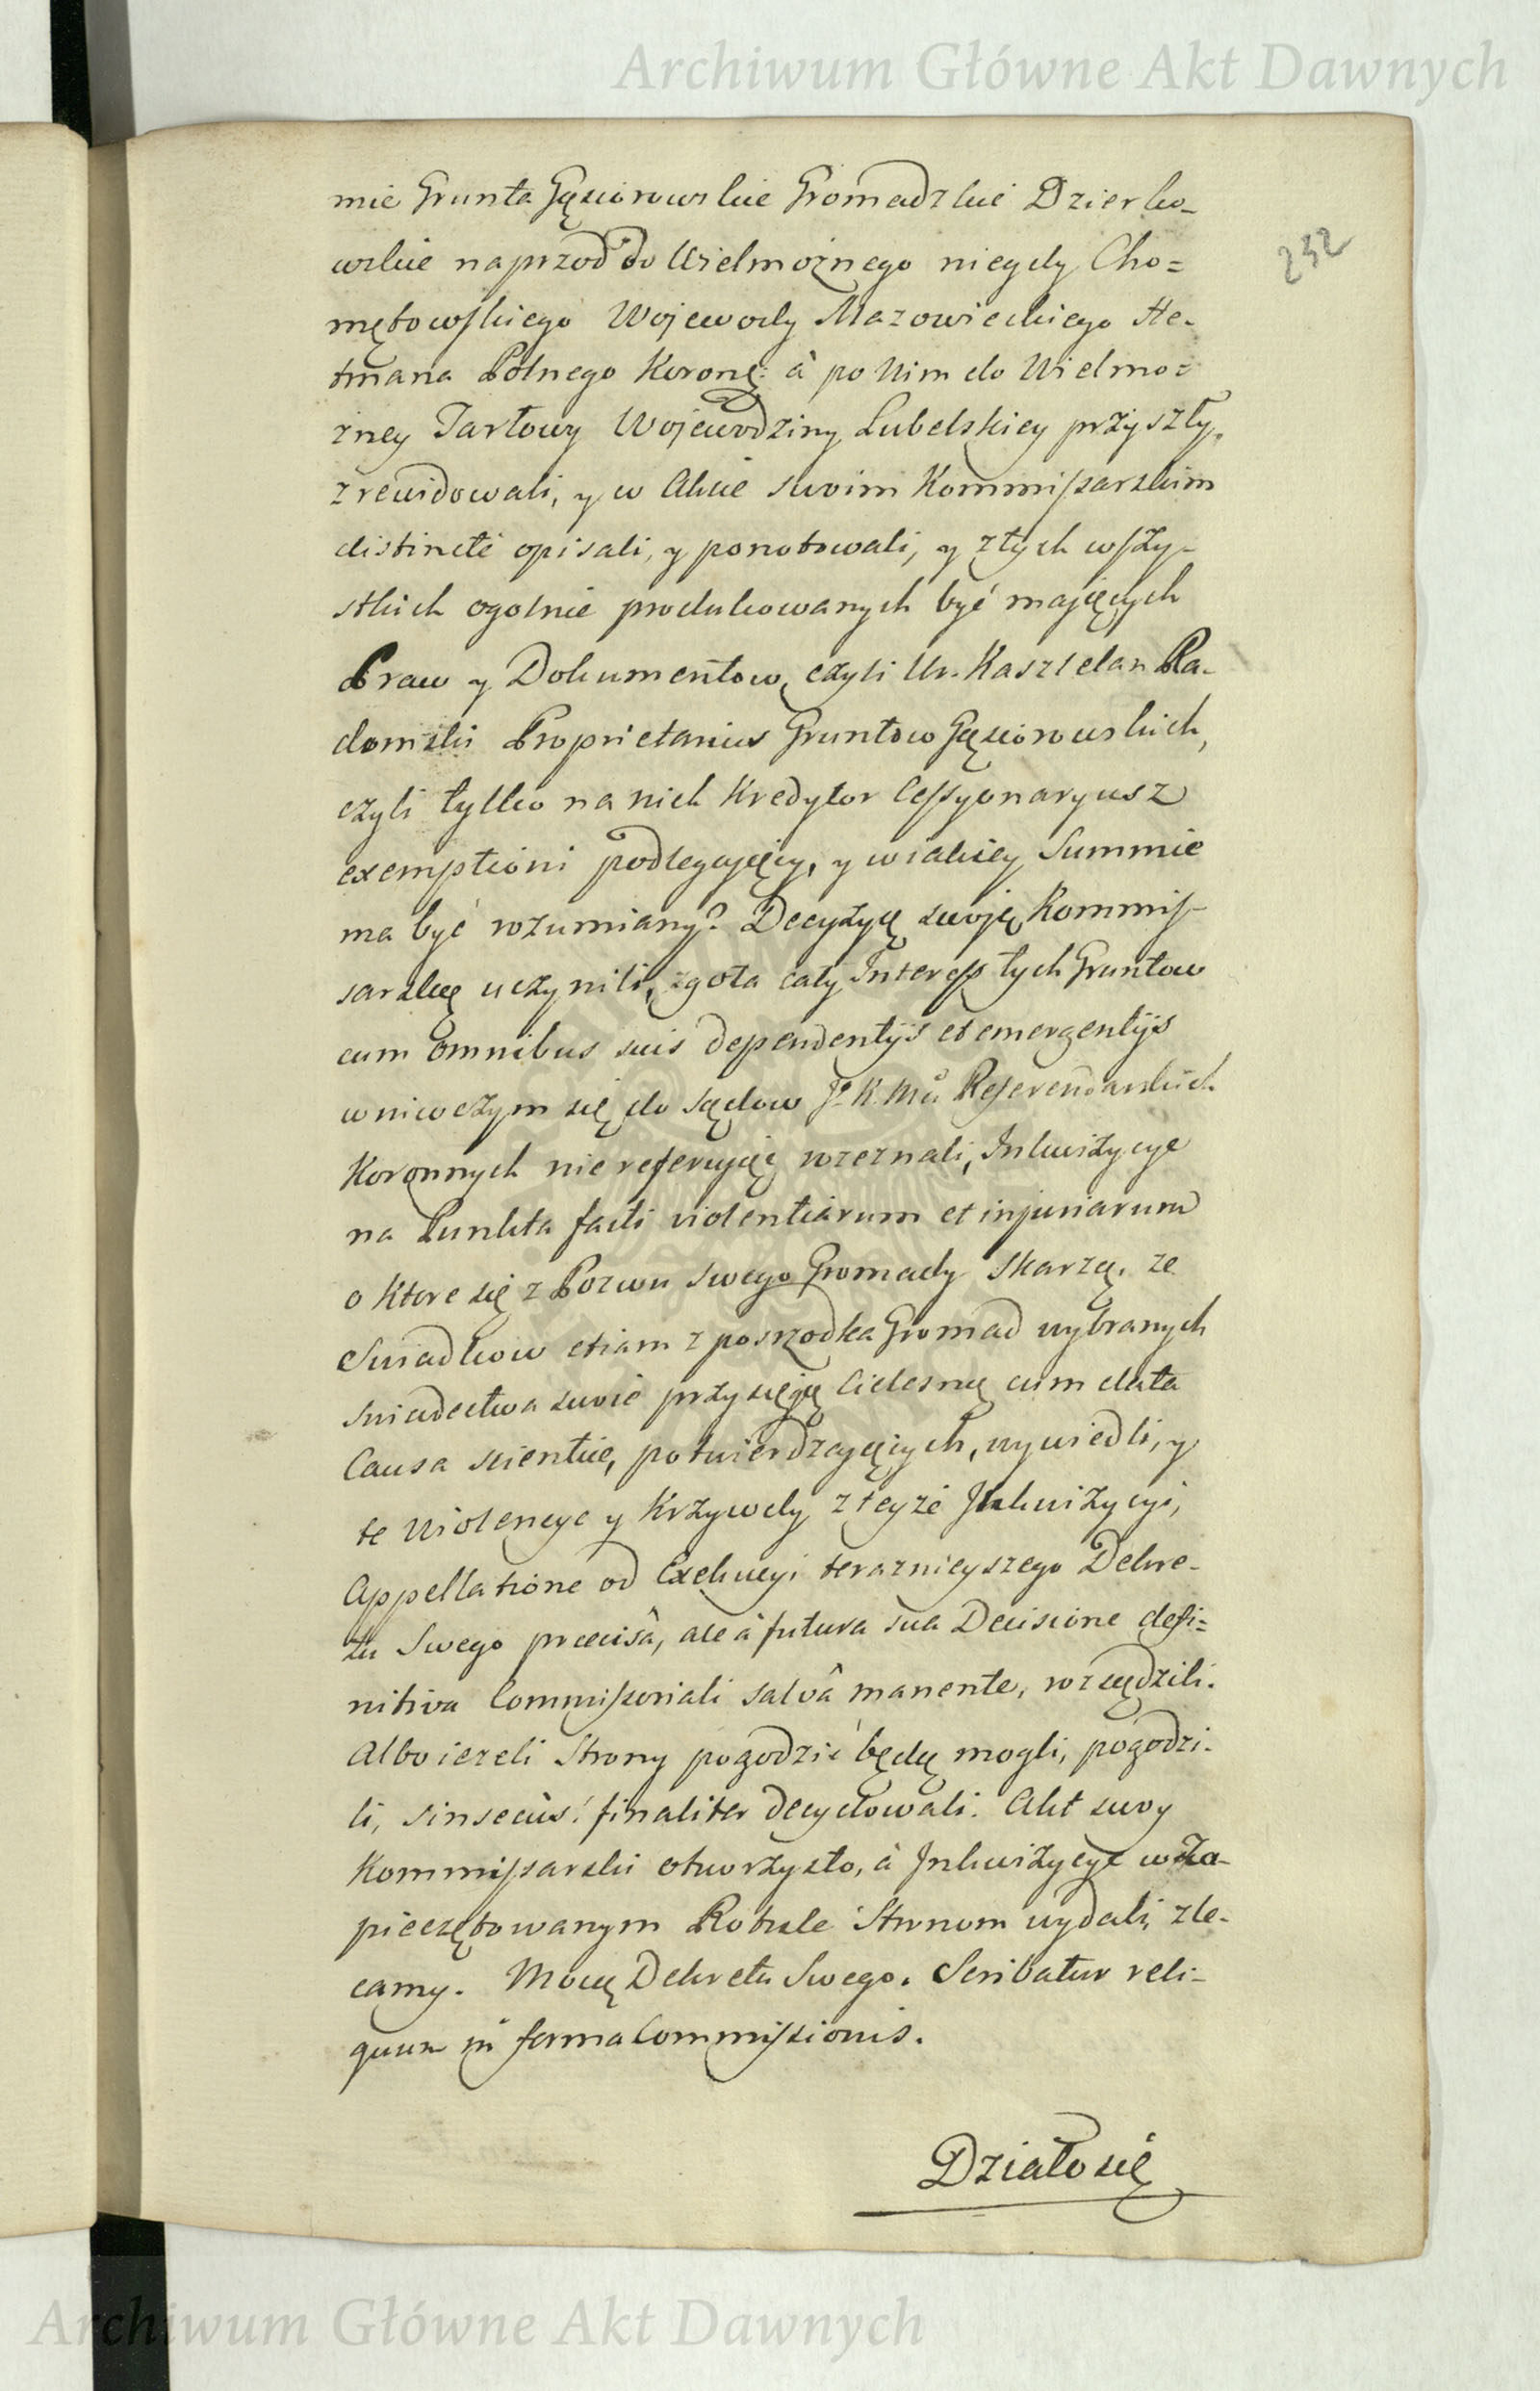 Archiwum Główne Akt Dawnych
232
mie Grunta Gąsiorowskie Gromadzkie Dzierko-
wskie naprzod do Wielmożnego niegdy Cho=
mętowskiego Wojewody Mazowieckiego He-
tmana Polnego Koronę: à po Nim do Wielmo=
żney Tarłowy Wojewodziny Lubelskiey przyszły,
zrewidowali, y w Akcie swoim Kommissarskim
distincte opisali, y ponotowali, y z tych wszy-
stkich ogolnie produkowanych być mających
Praw y Dokumentow, czyli Ur. Kasztelan Ra-
domski Proprietarius Gruntow Gąsiorowskich,
czyli tylko na nich Kredytor Cessyonaryusz
exemptioni podlegaiący, y w iakiey Summie
ma być rozumiany? Decyzyą swoią Kommis-
sarską uczynili, zgoła cały Interess tych Gruntow
cum omnibus suis dependentijs et emergentijs
w niwczym się do Sądow J. K. Mći Referendarskich
Koronnych nie referuiąc rozeznali, Inkwizycye
na Punkta facti violentiarum et injuriarum
o ktore się z Pozwu Swego Gromady skarżą, ze
Swiadkow etiam z posrzodka Gromad wybranych
swiadectwa swoie przysięgą Cielesną cum data
Causa scientiæ, potwierdzaiących, wywiedli, y
te Violencye y Krzywdy z teyże Inkwizycyi,
Appellatione od Exekucyi teraznieyszego Dekre-
tu Swego præcisâ, ale à futura sua Decisione defi=
nitiva Commissoriali salvâ manente, rozsądzili.
Albo ieżeli Strony pogodzić będą mogli, pogodzi-
li, sin secùs! finaliter decydowali. Akt swoy
Kommissarski otworzysto, à Inkwizycye w Za-
pieczętowanym Rotule Stronom wydali, zle-
camy. Mocą Dekretu Swego. Scribatur reli-
quum in forma Commissionis.
Działo się
Archiwum Główne Akt Dawnych